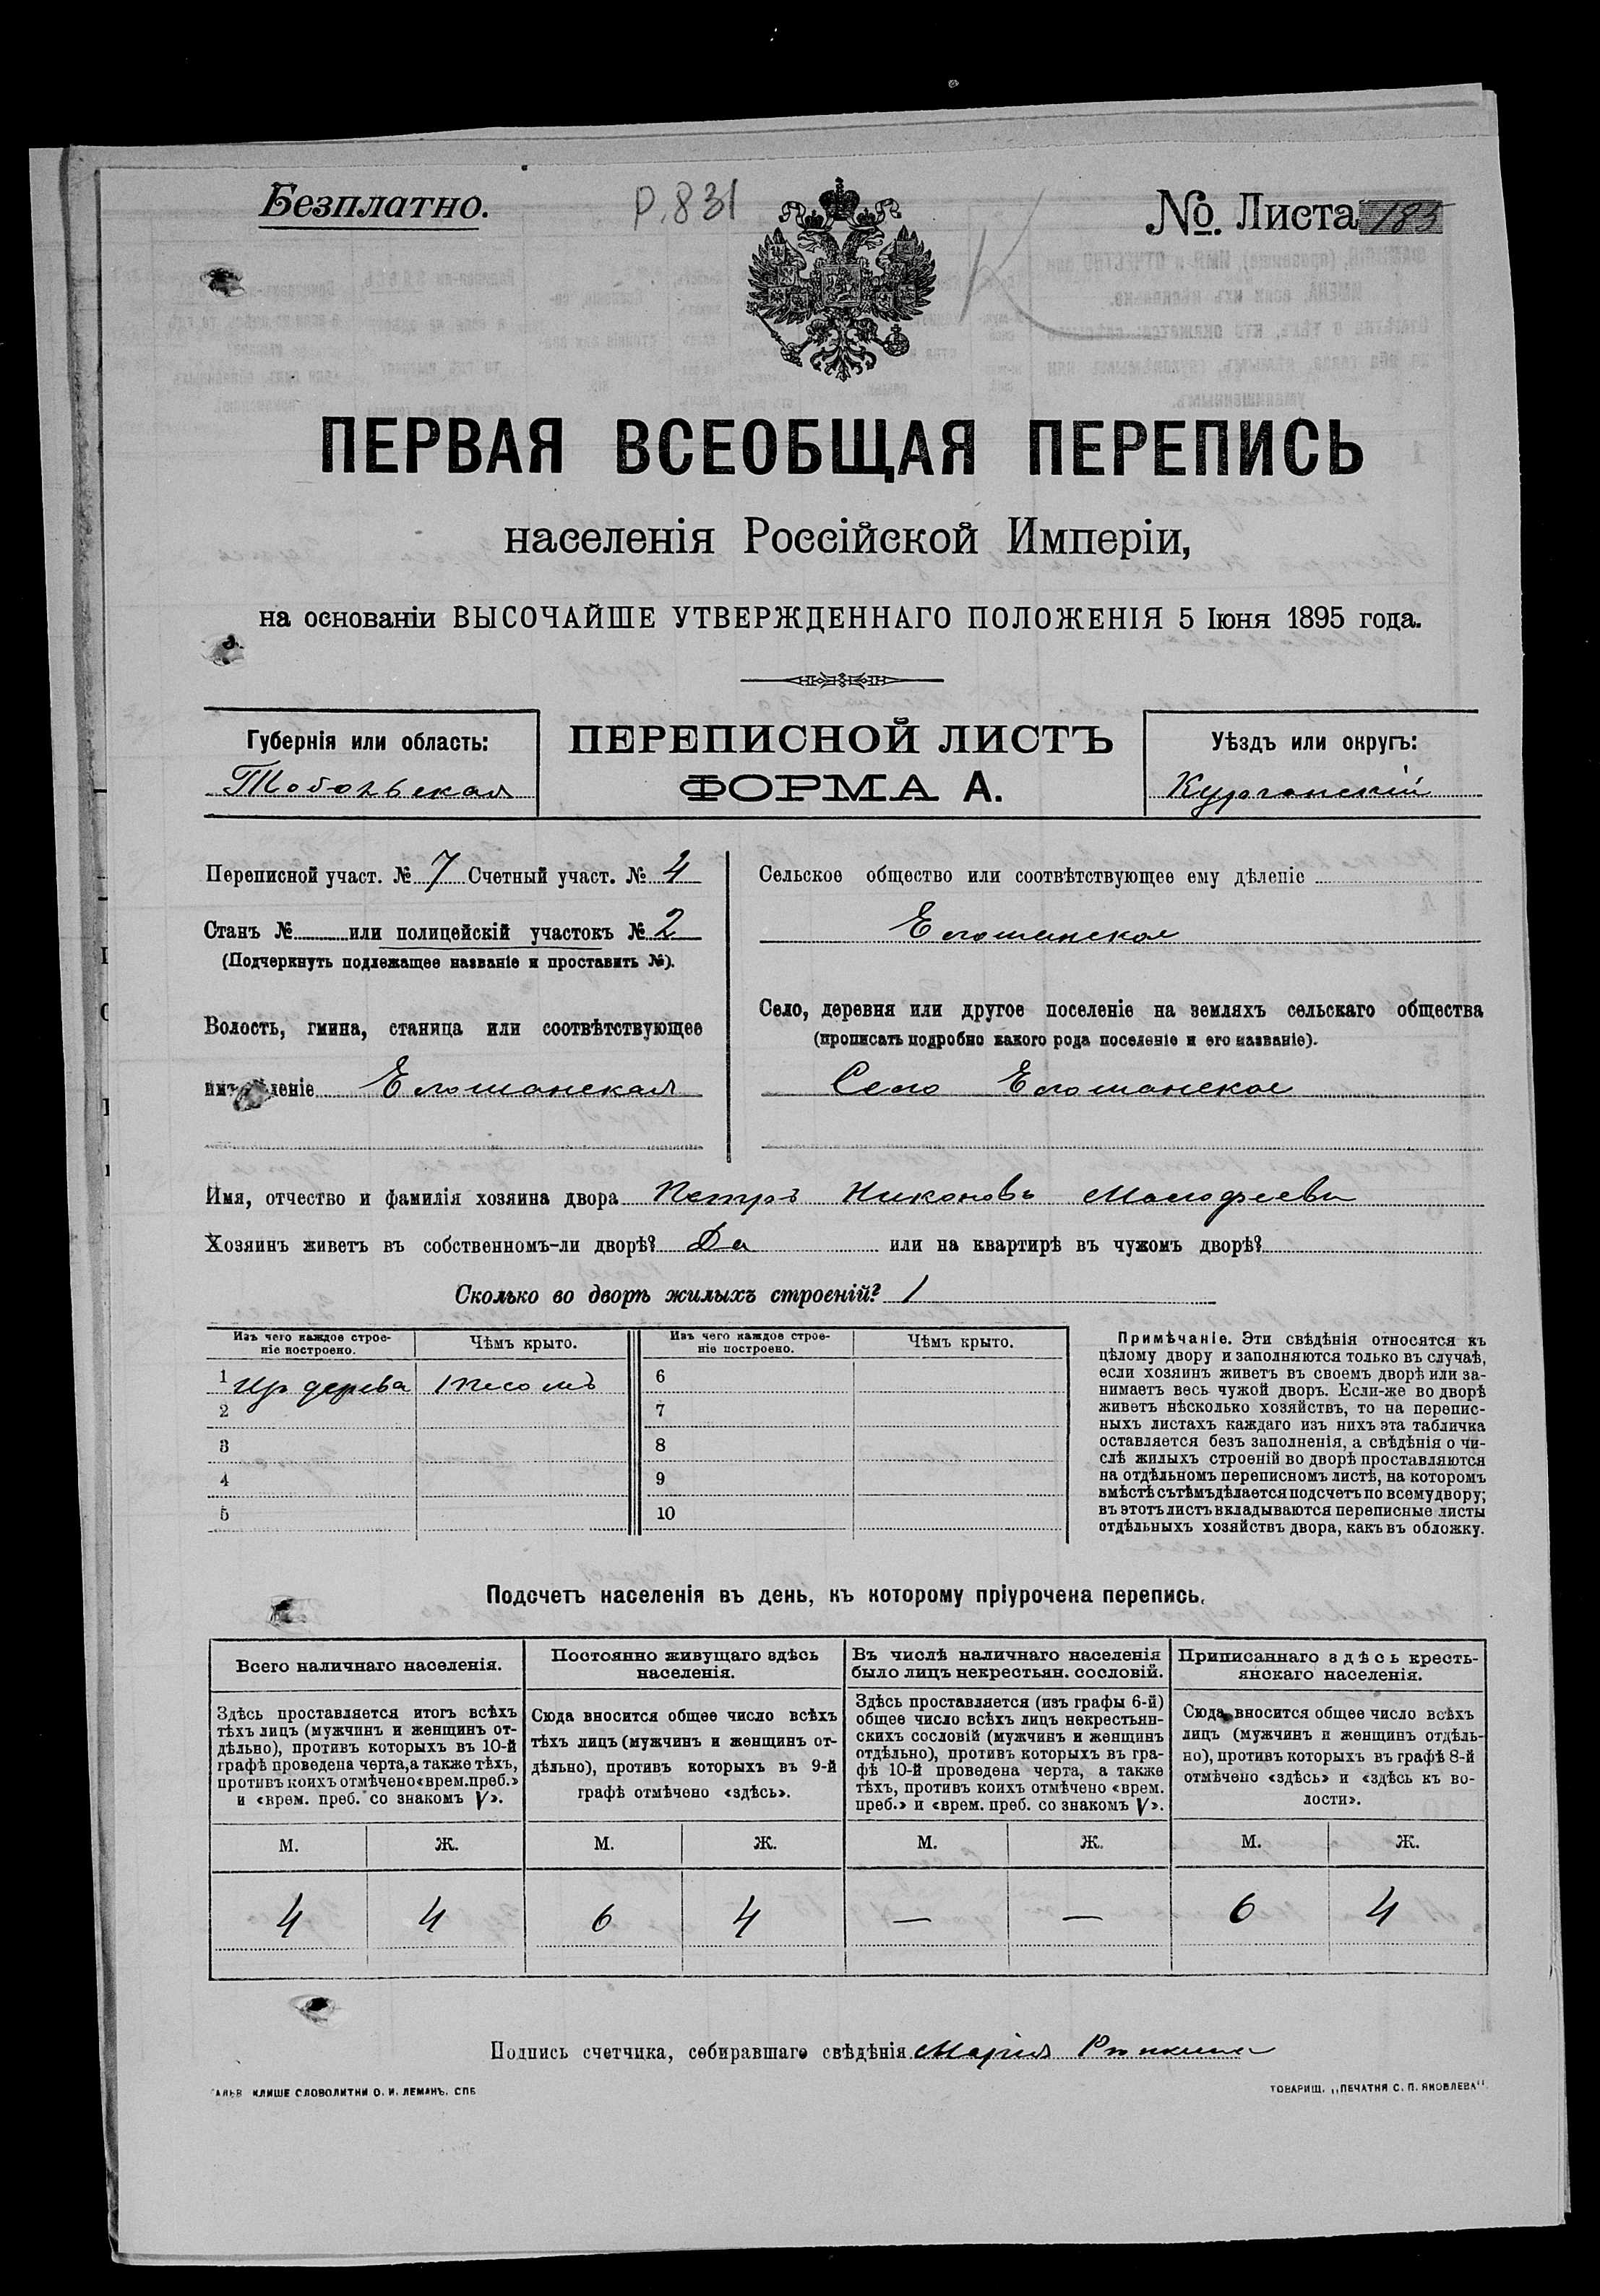 Безплатно.
Р. 831
№ Листа 185
ПЕРВАЯ ВСЕОБЩАЯ ПЕРЕПИСЬ
населенія Россійской Имперіи,
на основаніи ВЫСОЧАЙШЕ УТВЕРЖДЕННАГО ПОЛОЖЕНІЯ 5 Іюня 1895 года.
Губернія или область:
Тобольская
ПЕРЕПИСНОЙ ЛИСТЪ
ФОРМА А.
Уѣздъ или округъ:
Курганскій
Переписной участ. № 7 Счетный участ. № 4
Станъ № или полицейскій участокъ № 2
(Подчеркнуть подлежащее названіе и проставить №).
Волость, гмина, станица или соотвѣтствующее
имъ дѣленіе Елошанская
Сельское общество или соотвѣтствующее ему дѣленіе
Елошанское
Село, деревня или другое поселеніе на земляхъ сельскаго общества
(прописать подробно какого рода поселеніе и его названіе).
Село Елошанское
Имя, отчество и фамилія хозяина двора Петръ Никоновъ Малофеевъ
Хозяинъ живетъ въ собственномъ-ли дворѣ? Да или на квартирѣ въ чужомъ дворѣ?
Сколько во дворѣ жилыхъ строеній? 1
Изъ чего каждое строе-
ніе построено.
Чѣмъ крыто.
Изъ чего каждое строе-
ніе построено.
Чѣмъ крыто.
1 Изъ дерева Тесомъ 6
2 7
3 8
4 9
5 10
Примѣчаніе. Эти свѣдѣнія относятся къ
цѣлому двору и заполняются только въ случаѣ,
если хозяинъ живетъ въ своемъ дворѣ или за-
нимаетъ весь чужой дворъ. Если-же во дворѣ
живетъ нѣсколько хозяйствъ, то на перепис-
ныхъ листахъ каждаго изъ нихъ эта табличка
оставляется безъ заполненія, а свѣдѣнія о чи-
слѣ жилыхъ строеній во дворѣ проставляются
на отдѣльномъ переписномъ листѣ, на которомъ
вмѣстѣ съ тѣмъ дѣлается подсчетъ по всему двору;
въ этотъ листъ вкладываются переписные листы
отдѣльныхъ хозяйствъ двора, какъ въ обложку.
Подсчетъ населенія въ день, къ которому пріурочена перепись.
Всего наличнаго населенія.
Здѣсь проставляется итогъ всѣхъ
тѣхъ лицъ (мужчинъ и женщинъ от-
дѣльно), противъ которыхъ въ 10-й
графѣ проведена черта, а также тѣхъ,
противъ коихъ отмѣчено «врем. преб.»
и «врем. преб. со знакомъ V».
М. Ж.
4 4
Постоянно живущаго здѣсь
населенія.
Сюда вносится общее число всѣхъ
тѣхъ лицъ (мужчинъ и женщинъ от-
дѣльно), противъ которыхъ въ 9-й
графѣ отмѣчено «здѣсь».
М. Ж.
6 4
Въ числѣ наличнаго населенія
было лицъ некрестьян. сословій.
Здѣсь проставляется (изъ графы 6-й)
общее число всѣхъ лицъ некрестьян-
скихъ сословій (мужчинъ и женщинъ
отдѣльно), противъ которыхъ въ гра-
фѣ 10-й проведена черта, а также
тѣхъ, противъ коихъ отмѣчено «врем.
преб.» и «врем. преб. со знакомъ V».
М. Ж.
— —
Приписаннаго здѣсь кресть-
янскаго населенія.
Сюда вносится общее число всѣхъ
лицъ (мужчинъ и женщинъ отдѣль-
но), противъ которыхъ въ графѣ 8-й
отмѣчено «здѣсь» и «здѣсь къ во-
лости».
М. Ж.
6 4
Подпись счетчика, собиравшаго свѣдѣнія Марія
КЛИШЕ СЛОВОЛИТНИ О. И. ЛЕМАНЪ. СПБ
ТОВАРИЩ. „ПЕЧАТНЯ С. П. ЯКОВЛЕВА".